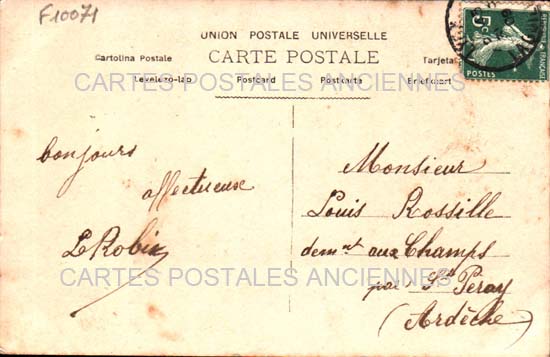 F10071
UNION POSTALE UNIVERSELLE
CARTE POSTALE
Cartolina Postale
Tarjeta
Levelezo-lap Postcard Postkarte Briefkaart
CARTES POSTALES ANCIENNES
5c
POSTES
FRANÇAISE
bonjours
affectueuse
Le Robin
Monsieur
Louis Rossille
demnt aux Champs
par St Péray
(Ardèche)
CARTES POSTALES ANCIENNES